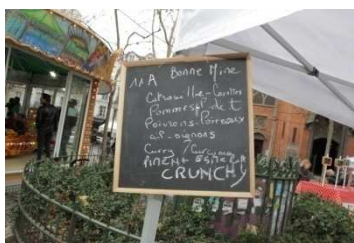 A Bonne Mine
Carottes
Pommes de t
Poivrons-Poireaux
ail-oignons
Curry / Curcuma
PIMENT ESPELETTE
CRUNCHY